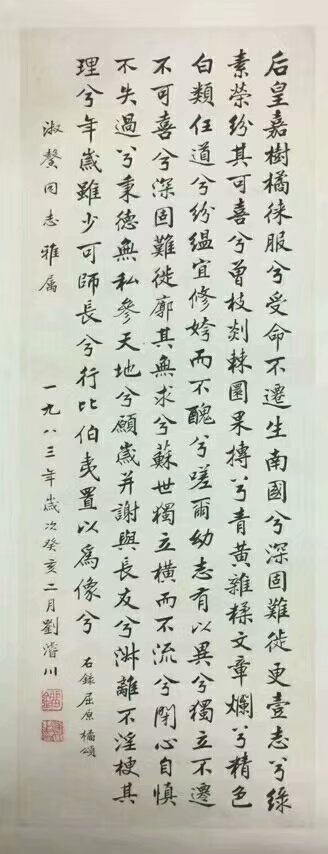 后皇嘉樹橘徠服兮受命不遷生南國兮深固難徙更壹志兮綠
素榮紛其可喜兮曾枝剡棘圜果摶兮青黃雜糅文章爛兮精色
白類任道兮紛緼宜修姱而不醜兮嗟爾幼志有以異兮獨立不遷
不可喜兮深固難徙廓其無求兮蘇世獨立橫而不流兮閉心自慎
不失過兮秉德無私參天地兮願歲并謝與長友兮淑離不淫梗其
理兮年歲雖少可師長兮行比伯夷置以為像兮
右錄屈原橘頌
淑馨同志雅属
一九八三年歲次癸亥二月劉濬川